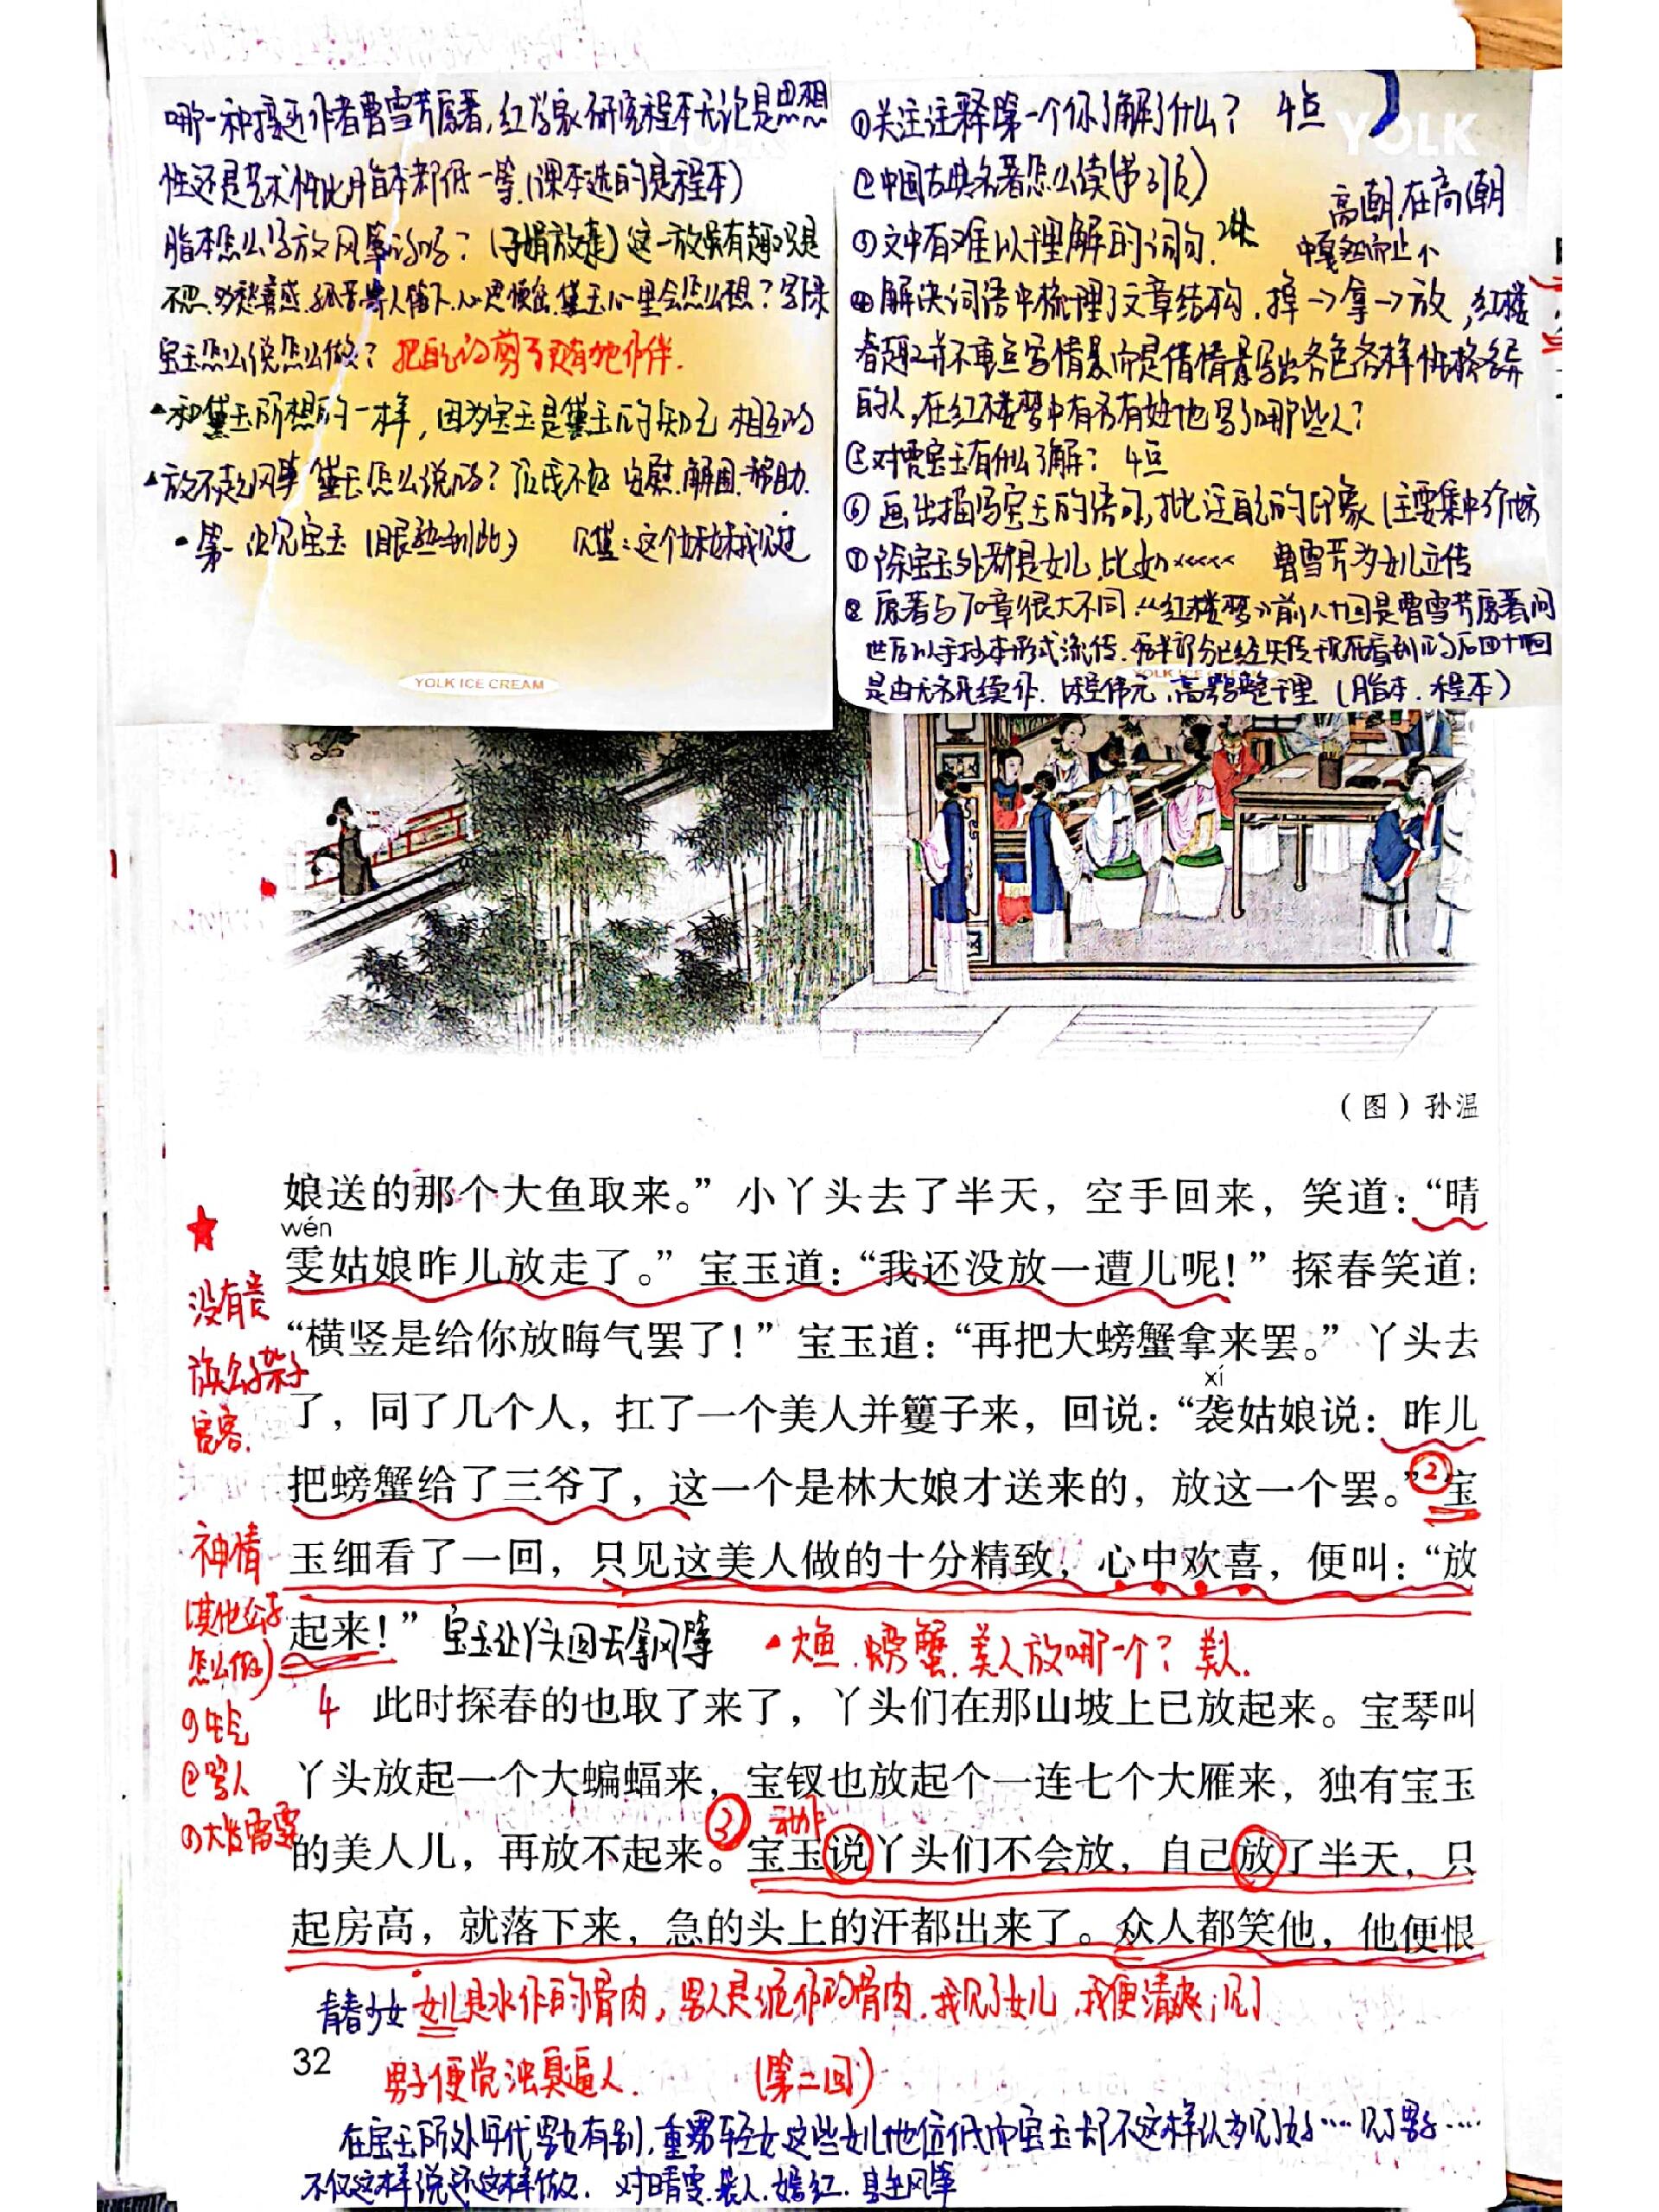 哪一种接近作者曹雪芹原著,红学家研究程本无论是思想
性还是艺术性比脂本都低一等(课本选的是程本)
脂本怎么写放风筝的呢?(子鹃放走)这一放虽有趣只是
不忍
黛玉心里会怎么想?
宝玉怎么说怎么做?把自己的剪了更有她作伴.
和黛玉所想的一样,因为宝玉是黛玉的知己 相互的
放不起风筝 黛玉怎么说的? 安慰.解围.帮助.
第一次见宝玉(眼熟到此) 见黛:这个妹妹我见过
YOLK ICE CREAM
YOLK
①关注注释第一个你了解了什么? 4点
②中国古典名著怎么读
高潮,在高潮
③文中有难以理解的词句.
中戛然而止
④解决词语中梳理了文章结构.择→拿→放,红楼
春趣并不重点写情景而是借情景写出各色各样性格各异
的人,在红楼梦中有名有姓地写了哪些人?
⑤对贾宝玉有什么了解? 4点
⑥画出描写宝玉的语句,批注自己的印象(主要集中
⑦除宝玉外都是女儿.比如 曹雪芹为女儿立传
⑧原著与70章很大不同.《红楼梦》前八十回是曹雪芹原著问
世后以手抄本形式流传.后半部分已经失传 现在看到的后四十回
是由无名氏续作.程伟元、高鹗整理(脂本.程本)
(图)孙温
娘送的那个大鱼取来。”小丫头去了半天,空手回来,笑道:“晴
wén
雯姑娘昨儿放走了。”宝玉道:“我还没放一遭儿呢!”探春笑道:
没有贵
“横竖是给你放晦气罢了!”宝玉道:“再把大螃蟹拿来罢。”丫头去
族公子架子
xí
了,同了几个人,扛了一个美人并籰子来,回说:“袭姑娘说:昨儿
宽容.
把螃蟹给了三爷了,这一个是林大娘才送来的,放这一个罢。”②宝
神情
玉细看了一回,只见这美人做的十分精致,心中欢喜,便叫:“放
(其他公子
起来!” 宝玉让丫头回去拿风筝 大鱼.螃蟹.美人放哪一个?美人.
怎么做)
4 此时探春的也取了来了,丫头们在那山坡上已放起来。宝琴叫
①生气
丫头放起一个大蝙蝠来,宝钗也放起个一连七个大雁来,独有宝玉
②骂人
③ 动作
③大发雷霆
的美人儿,再放不起来。宝玉说丫头们不会放,自己放了半天,只
起房高,就落下来,急的头上的汗都出来了。众人都笑他,他便恨
青春少女 女儿是水作的骨肉,男人是泥作的骨肉.我见了女儿,我便清爽;见了
32
男子便觉浊臭逼人. (第二回)
在宝玉所处年代男女有别,重男轻女这些女儿地位低而宝玉却不这样认为见了女…… 见了男子……
不仅这样说还这样做. 对晴雯.袭人.嫣红.